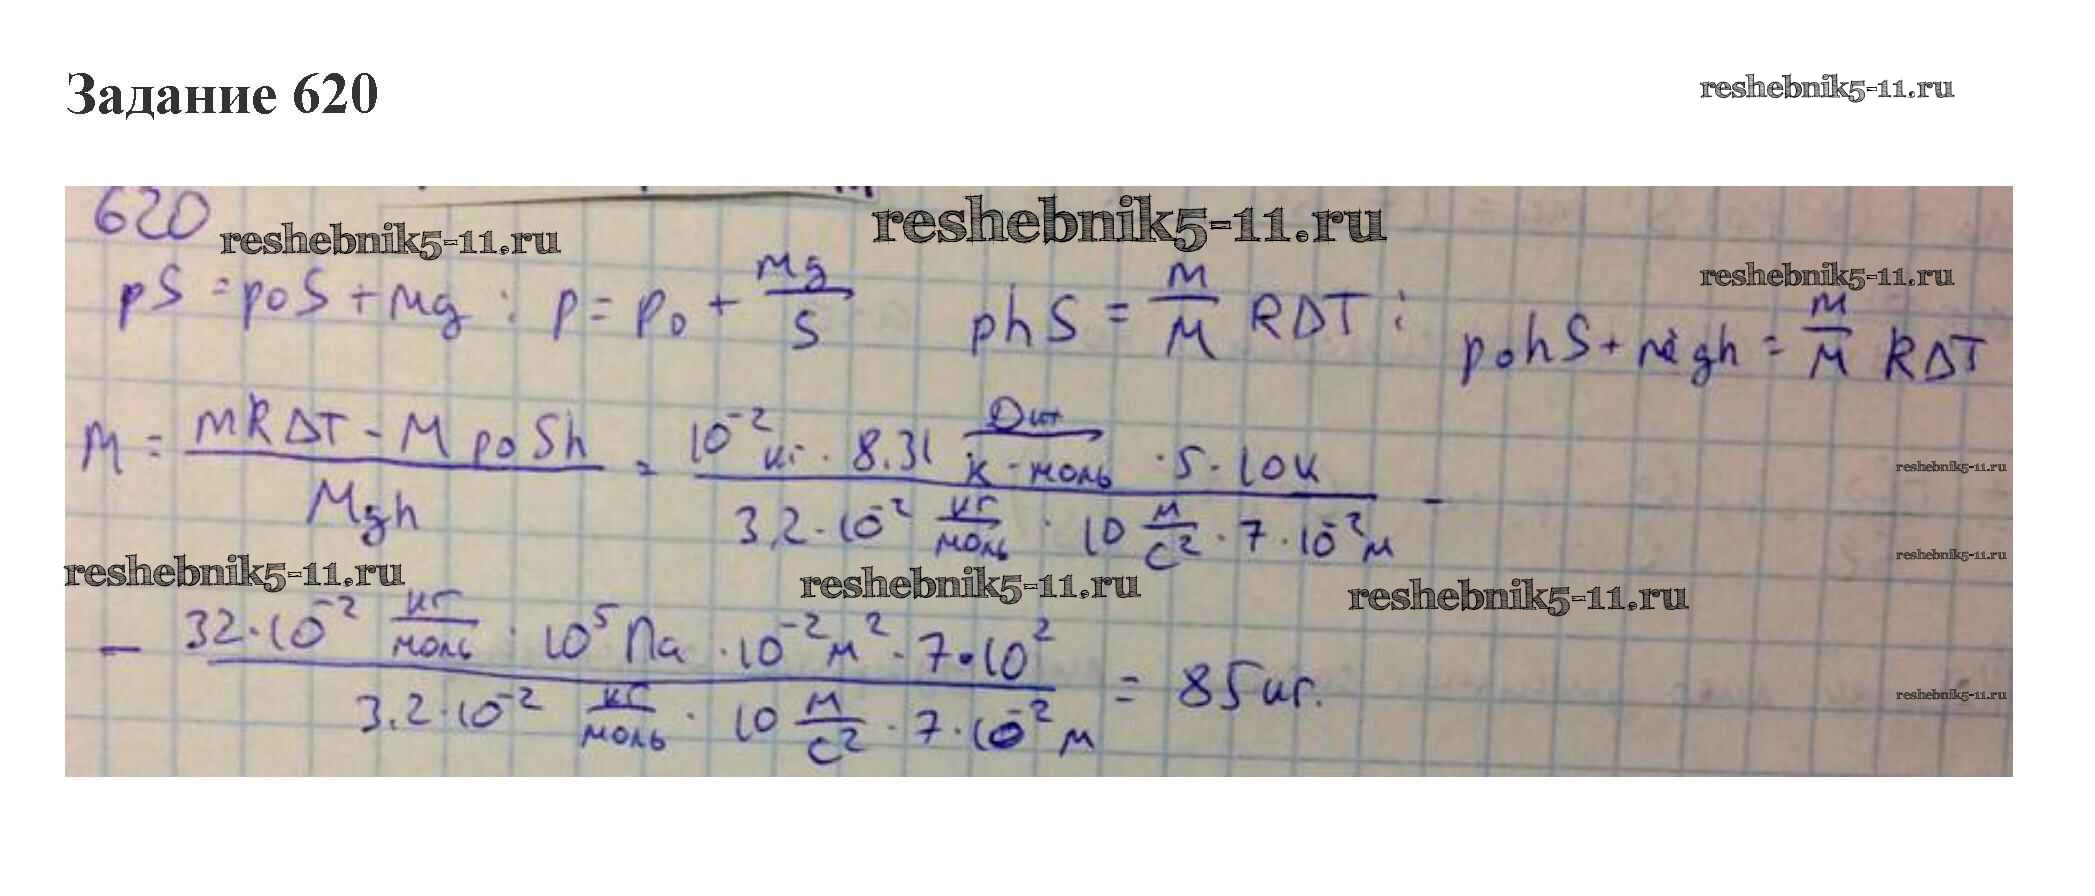 Задание 620
reshebnik5-11.ru
620
reshebnik5-11.ru
reshebnik5-11.ru
reshebnik5-11.ru
pS = p₀S + Mg ; p = p₀ + Mg/S phS = m/M RΔT ; p₀hS + mgh = m/M RΔT
M = (mRΔT - Mp₀Sh)/(Mgh) = (10⁻² кг · 8.31 Дж/(К · моль) · 5 · 10К)/(3,2 · 10⁻² кг/моль · 10 м/с² · 7 · 10⁻² м) -
reshebnik5-11.ru
reshebnik5-11.ru
reshebnik5-11.ru
reshebnik5-11.ru
reshebnik5-11.ru
- (32 · 10⁻² кг/моль · 10⁵ Па · 10⁻² м² · 7 · 10²)/(3.2 · 10⁻² кг/моль · 10 м/с² · 7 · 10⁻² м) = 85 кг.
reshebnik5-11.ru